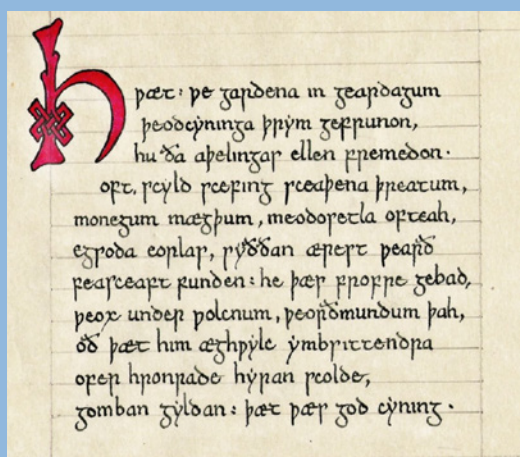 hƿæt: ƿe gardena in geardagum
þeodcẏninga þrẏm gefrunon,
hu ða aþelingas ellen fremedon·
oft. scẏld scefing sceaþena þreatum,
monegum mægþum, meodosetla ofteah,
egsoda eorlas, sẏððan ærest ƿearð
feasceaft funden: he þæs frofre gebad,
ƿeox under ƿolcnum, ƿeorðmundum þah,
oð þæt him æghƿẏlc ẏmbsittendra
ofer hronrade hẏran scolde,
gomban gẏldan: þæt ƿæs god cẏning·